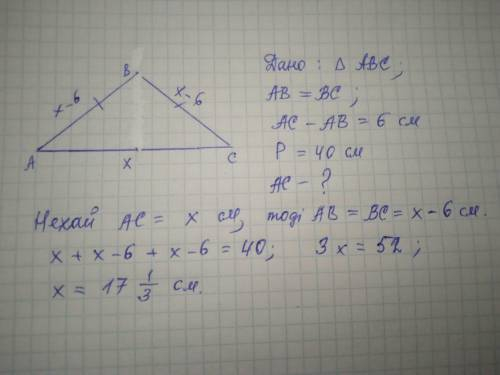 B
x-6
x-6
A
x
C
Дано: Δ ABC;
AB = BC;
AC - AB = 6 см
P = 40 см
AC - ?
Нехай AC = x см, тоді AB = BC = x - 6 см.
x + x - 6 + x - 6 = 40; 3x = 52;
x = 17 1/3 см.